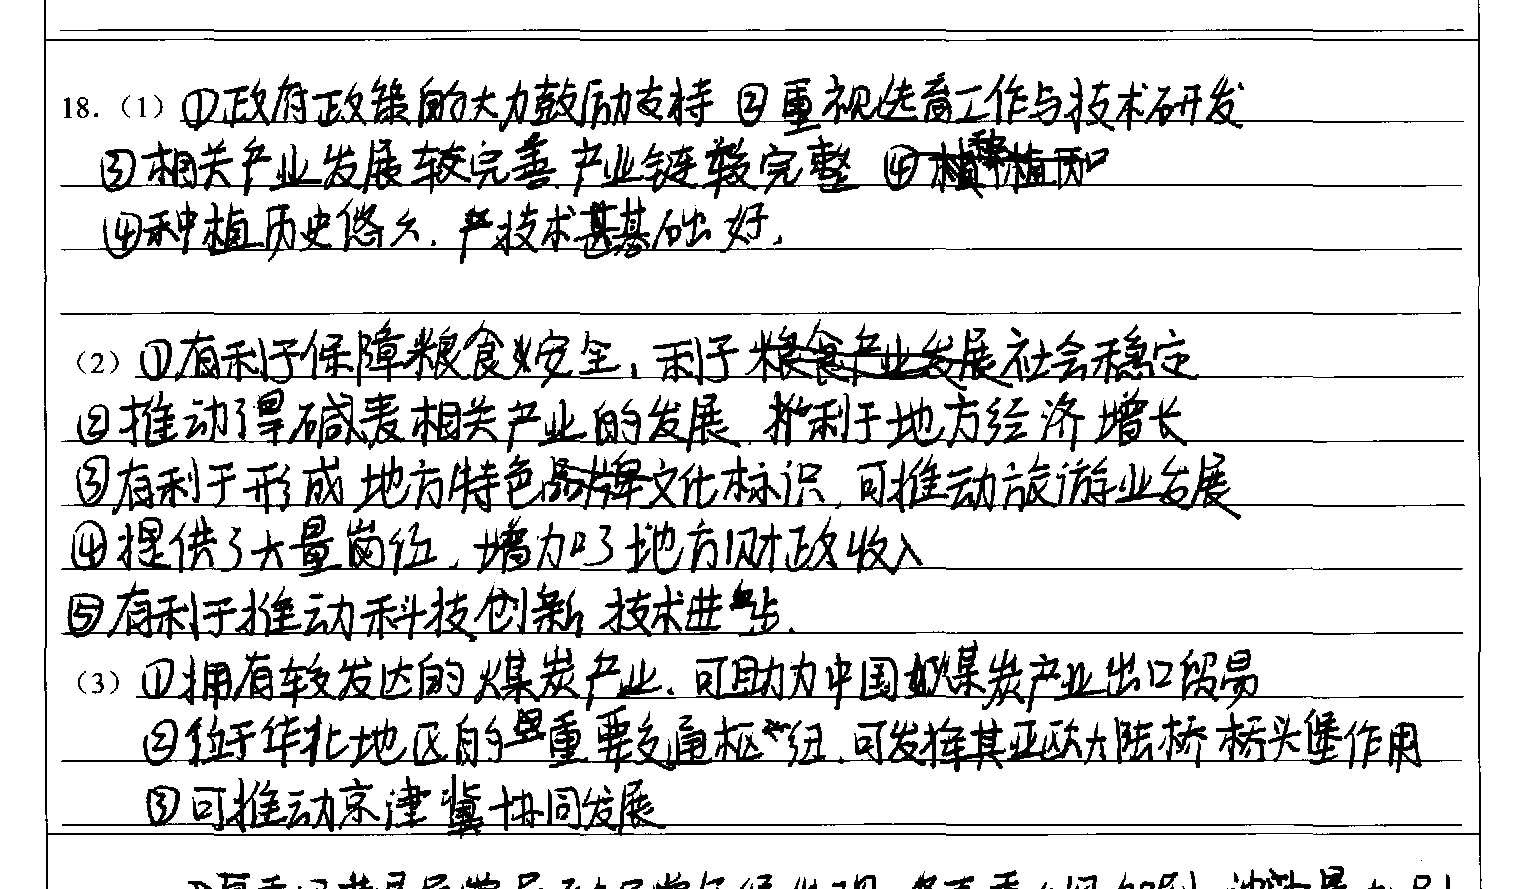 18.（1）①政府政策的大力鼓励支持 ②重视选育工作与技术研发
③相关产业发展较完善.产业链较完整
④种植历史悠久.技术基础好,
（2）①有利于保障粮食安全,利于社会稳定
②推动了旱碱麦相关产业的发展.利于地方经济增长
③有利于形成地方特色文化标识,可推动旅游业发展
④提供了大量岗位,增加了地方财政收入
⑤有利于推动科技创新,技术进步.
（3）①拥有较发达的煤炭产业.可助力中国煤炭产业出口贸易
②位于华北地区的重要交通枢纽.可发挥其亚欧大陆桥桥头堡作用
③可推动京津冀协同发展